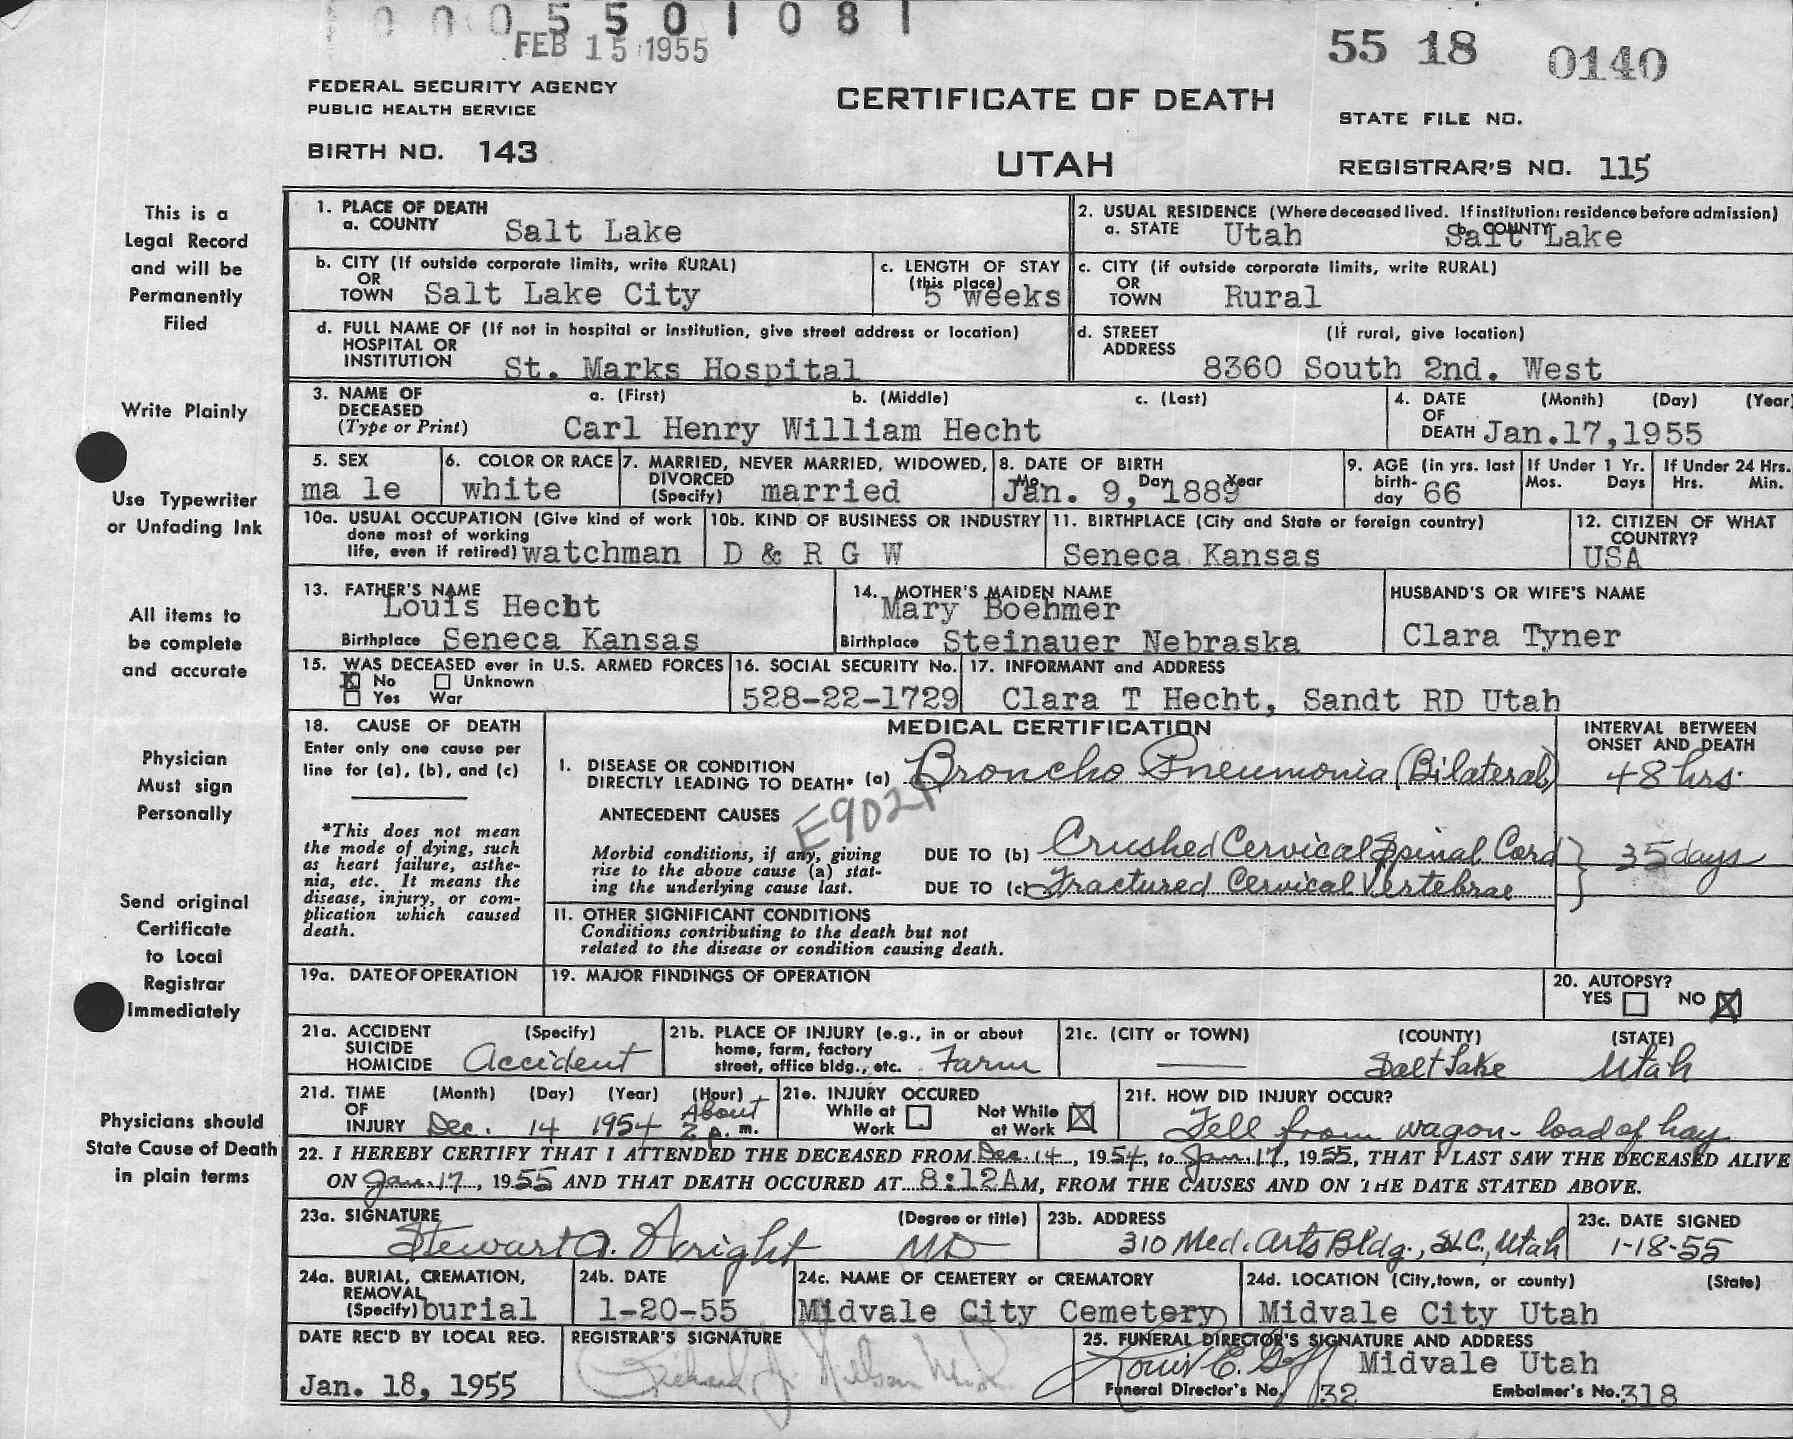 0 0 0 5 5 0 1 0 8 1
FEB 15 1955
55 18 0140
FEDERAL SECURITY AGENCY
PUBLIC HEALTH SERVICE
CERTIFICATE OF DEATH
STATE FILE NO.
BIRTH NO. 143
UTAH
REGISTRAR'S NO. 115
This is a
Legal Record
and will be
Permanently
Filed
Write Plainly
Use Typewriter
or Unfading Ink
All items to
be complete
and accurate
Physician
Must sign
Personally
Send original
Certificate
to Local
Registrar
Immediately
Physicians should
State Cause of Death
in plain terms
1. PLACE OF DEATH
a. COUNTY Salt Lake
2. USUAL RESIDENCE (Where deceased lived. If institution: residence before admission)
a. STATE Utah b. COUNTY Salt Lake
b. CITY (If outside corporate limits, write RURAL)
OR
TOWN Salt Lake City
c. LENGTH OF STAY
(this place)
5 weeks
c. CITY (if outside corporate limits, write RURAL)
OR
TOWN Rural
d. FULL NAME OF (If not in hospital or institution, give street address or location)
HOSPITAL OR
INSTITUTION St. Marks Hospital
d. STREET (If rural, give location)
ADDRESS
8360 South 2nd. West
3. NAME OF a. (First) b. (Middle) c. (Last)
DECEASED
(Type or Print) Carl Henry William Hecht
4. DATE (Month) (Day) (Year)
OF
DEATH Jan.17,1955
5. SEX
ma le
6. COLOR OR RACE
white
7. MARRIED, NEVER MARRIED, WIDOWED,
DIVORCED
(Specify) married
8. DATE OF BIRTH
Mo. Day Year
Jan. 9, 1889
9. AGE (in yrs. last
birth-
day 66
If Under 1 Yr.
Mos. Days
If Under 24 Hrs.
Hrs. Min.
10a. USUAL OCCUPATION (Give kind of work
done most of working
life, even if retired) watchman
10b. KIND OF BUSINESS OR INDUSTRY
D & R G W
11. BIRTHPLACE (City and State or foreign country)
Seneca Kansas
12. CITIZEN OF WHAT
COUNTRY?
USA
13. FATHER'S NAME
Louis Hecht
Birthplace Seneca Kansas
14. MOTHER'S MAIDEN NAME
Mary Boehmer
Birthplace Steinauer Nebraska
HUSBAND'S OR WIFE'S NAME
Clara Tyner
15. WAS DECEASED ever in U.S. ARMED FORCES
X No Unknown
Yes War
16. SOCIAL SECURITY No.
528-22-1729
17. INFORMANT and ADDRESS
Clara T Hecht, Sandt RD Utah
18. CAUSE OF DEATH
Enter only one cause per
line for (a), (b), and (c)
*This does not mean
the mode of dying, such
as heart failure, asthe-
nia, etc. It means the
disease, injury, or com-
plication which caused
death.
MEDICAL CERTIFICATION
INTERVAL BETWEEN
ONSET AND DEATH
I. DISEASE OR CONDITION
DIRECTLY LEADING TO DEATH* (a) Broncho Pneumonia (Bilateral) 48 hrs.
ANTECEDENT CAUSES
Morbid conditions, if any, giving
rise to the above cause (a) stat-
ing the underlying cause last.
DUE TO (b) Crushed Cervical Spinal Cord
DUE TO (c) Fractured Cervical Vertebrae
35 days
II. OTHER SIGNIFICANT CONDITIONS
Conditions contributing to the death but not
related to the disease or condition causing death.
19a. DATE OF OPERATION
19. MAJOR FINDINGS OF OPERATION
20. AUTOPSY?
YES NO X
21a. ACCIDENT (Specify)
SUICIDE
HOMICIDE Accident
21b. PLACE OF INJURY (e.g., in or about
home, farm, factory
street, office bldg., etc. Farm
21c. (CITY or TOWN) (COUNTY) (STATE)
— Salt Lake Utah
21d. TIME (Month) (Day) (Year) (Hour)
OF
INJURY Dec. 14 1954 About 2 p. m.
21e. INJURY OCCURED
While at Work
Not While at Work X
21f. HOW DID INJURY OCCUR?
Fell from wagon - load of hay
22. I HEREBY CERTIFY THAT I ATTENDED THE DECEASED FROM Dec. 14, 1954, to Jan. 17, 1955, THAT I LAST SAW THE DECEASED ALIVE
ON Jan. 17, 1955 AND THAT DEATH OCCURED AT 8:12 A M, FROM THE CAUSES AND ON THE DATE STATED ABOVE.
23a. SIGNATURE (Degree or title)
Stewart A. Wright MD
23b. ADDRESS
310 Med. Arts Bldg., S.L.C., Utah
23c. DATE SIGNED
1-18-55
24a. BURIAL, CREMATION,
REMOVAL
(Specify) burial
24b. DATE
1-20-55
24c. NAME OF CEMETERY or CREMATORY
Midvale City Cemetery
24d. LOCATION (City, town, or county) (State)
Midvale City Utah
DATE REC'D BY LOCAL REG.
Jan. 18, 1955
REGISTRAR'S SIGNATURE
25. FUNERAL DIRECTOR'S SIGNATURE AND ADDRESS
Louis E. Midvale Utah
Funeral Director's No. 132 Embalmer's No. 318